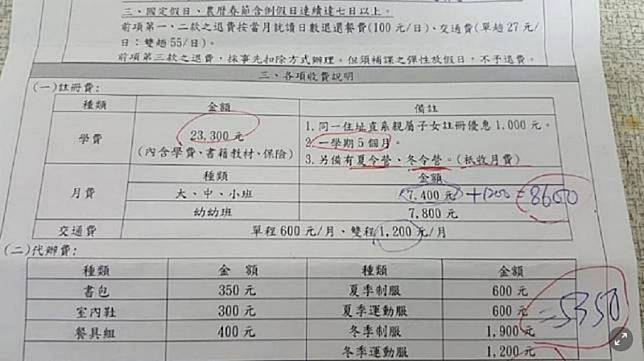 三、國定假日、農曆春節含例假日連續達七日以上。
前項第一、二款之退費按當月就讀日數退還餐費(100 元/日)、交通費(單趟 27 元/
日；雙趟 55/日)。
前項第三款之退費，採事先扣除方式辦理。但須補課之彈性放假日，不予退費。
三、各項收費說明
(一)註冊費：
種類 金額 備註
學費 23,300 元 (內含學費、書籍教材、保險)
1.同一住址直系親屬子女註冊優惠 1,000 元。
2.一學期 5 個月。
3.另備有夏令營、冬令營。(祇收月費)
月費 種類 金額
大、中、小班 7,400 元 +1200=8600
幼幼班 7,800 元
交通費 單程 600 元/月、雙程 1,200 元/月
(二)代辦費：
種類 金額 種類 金額
書包 350 元 夏季制服 600 元
室內鞋 300 元 夏季運動服 600 元 =5350
餐具組 400 元 冬季制服 1,900 元
冬季運動服 1,200 元